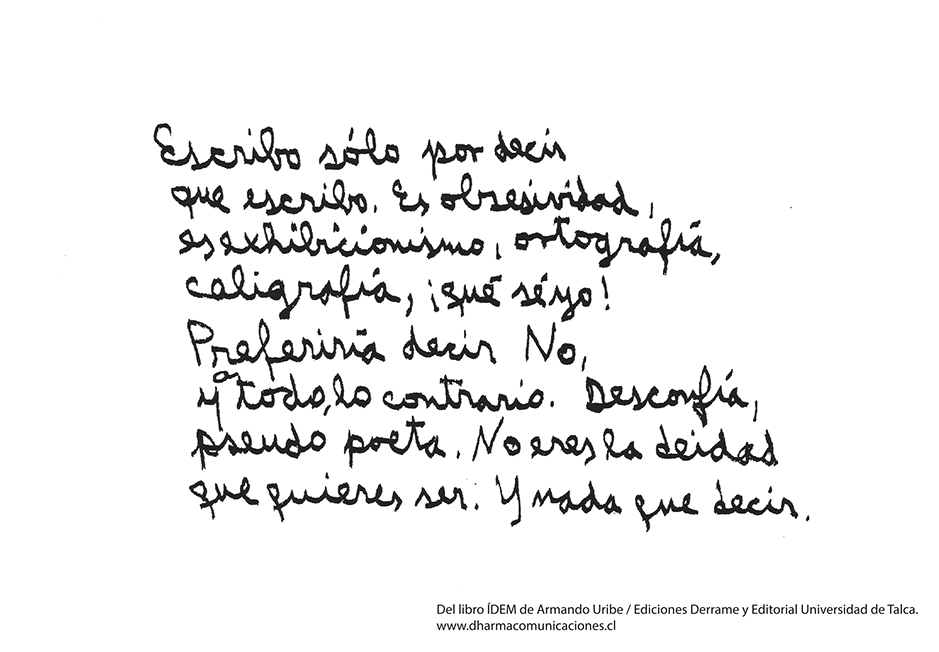 Escribo sólo por decir
que escribo. Es obsesividad,
es exhibicionismo, ortografía,
caligrafía, ¡qué sé yo!
Preferiría decir No,
y a todo, lo contrario. Desconfía,
pseudo poeta. No eres la deidad
que quieres ser. Y nada que decir.
Del libro ÍDEM de Armando Uribe / Ediciones Derrame y Editorial Universidad de Talca.
www.dharmacomunicaciones.cl